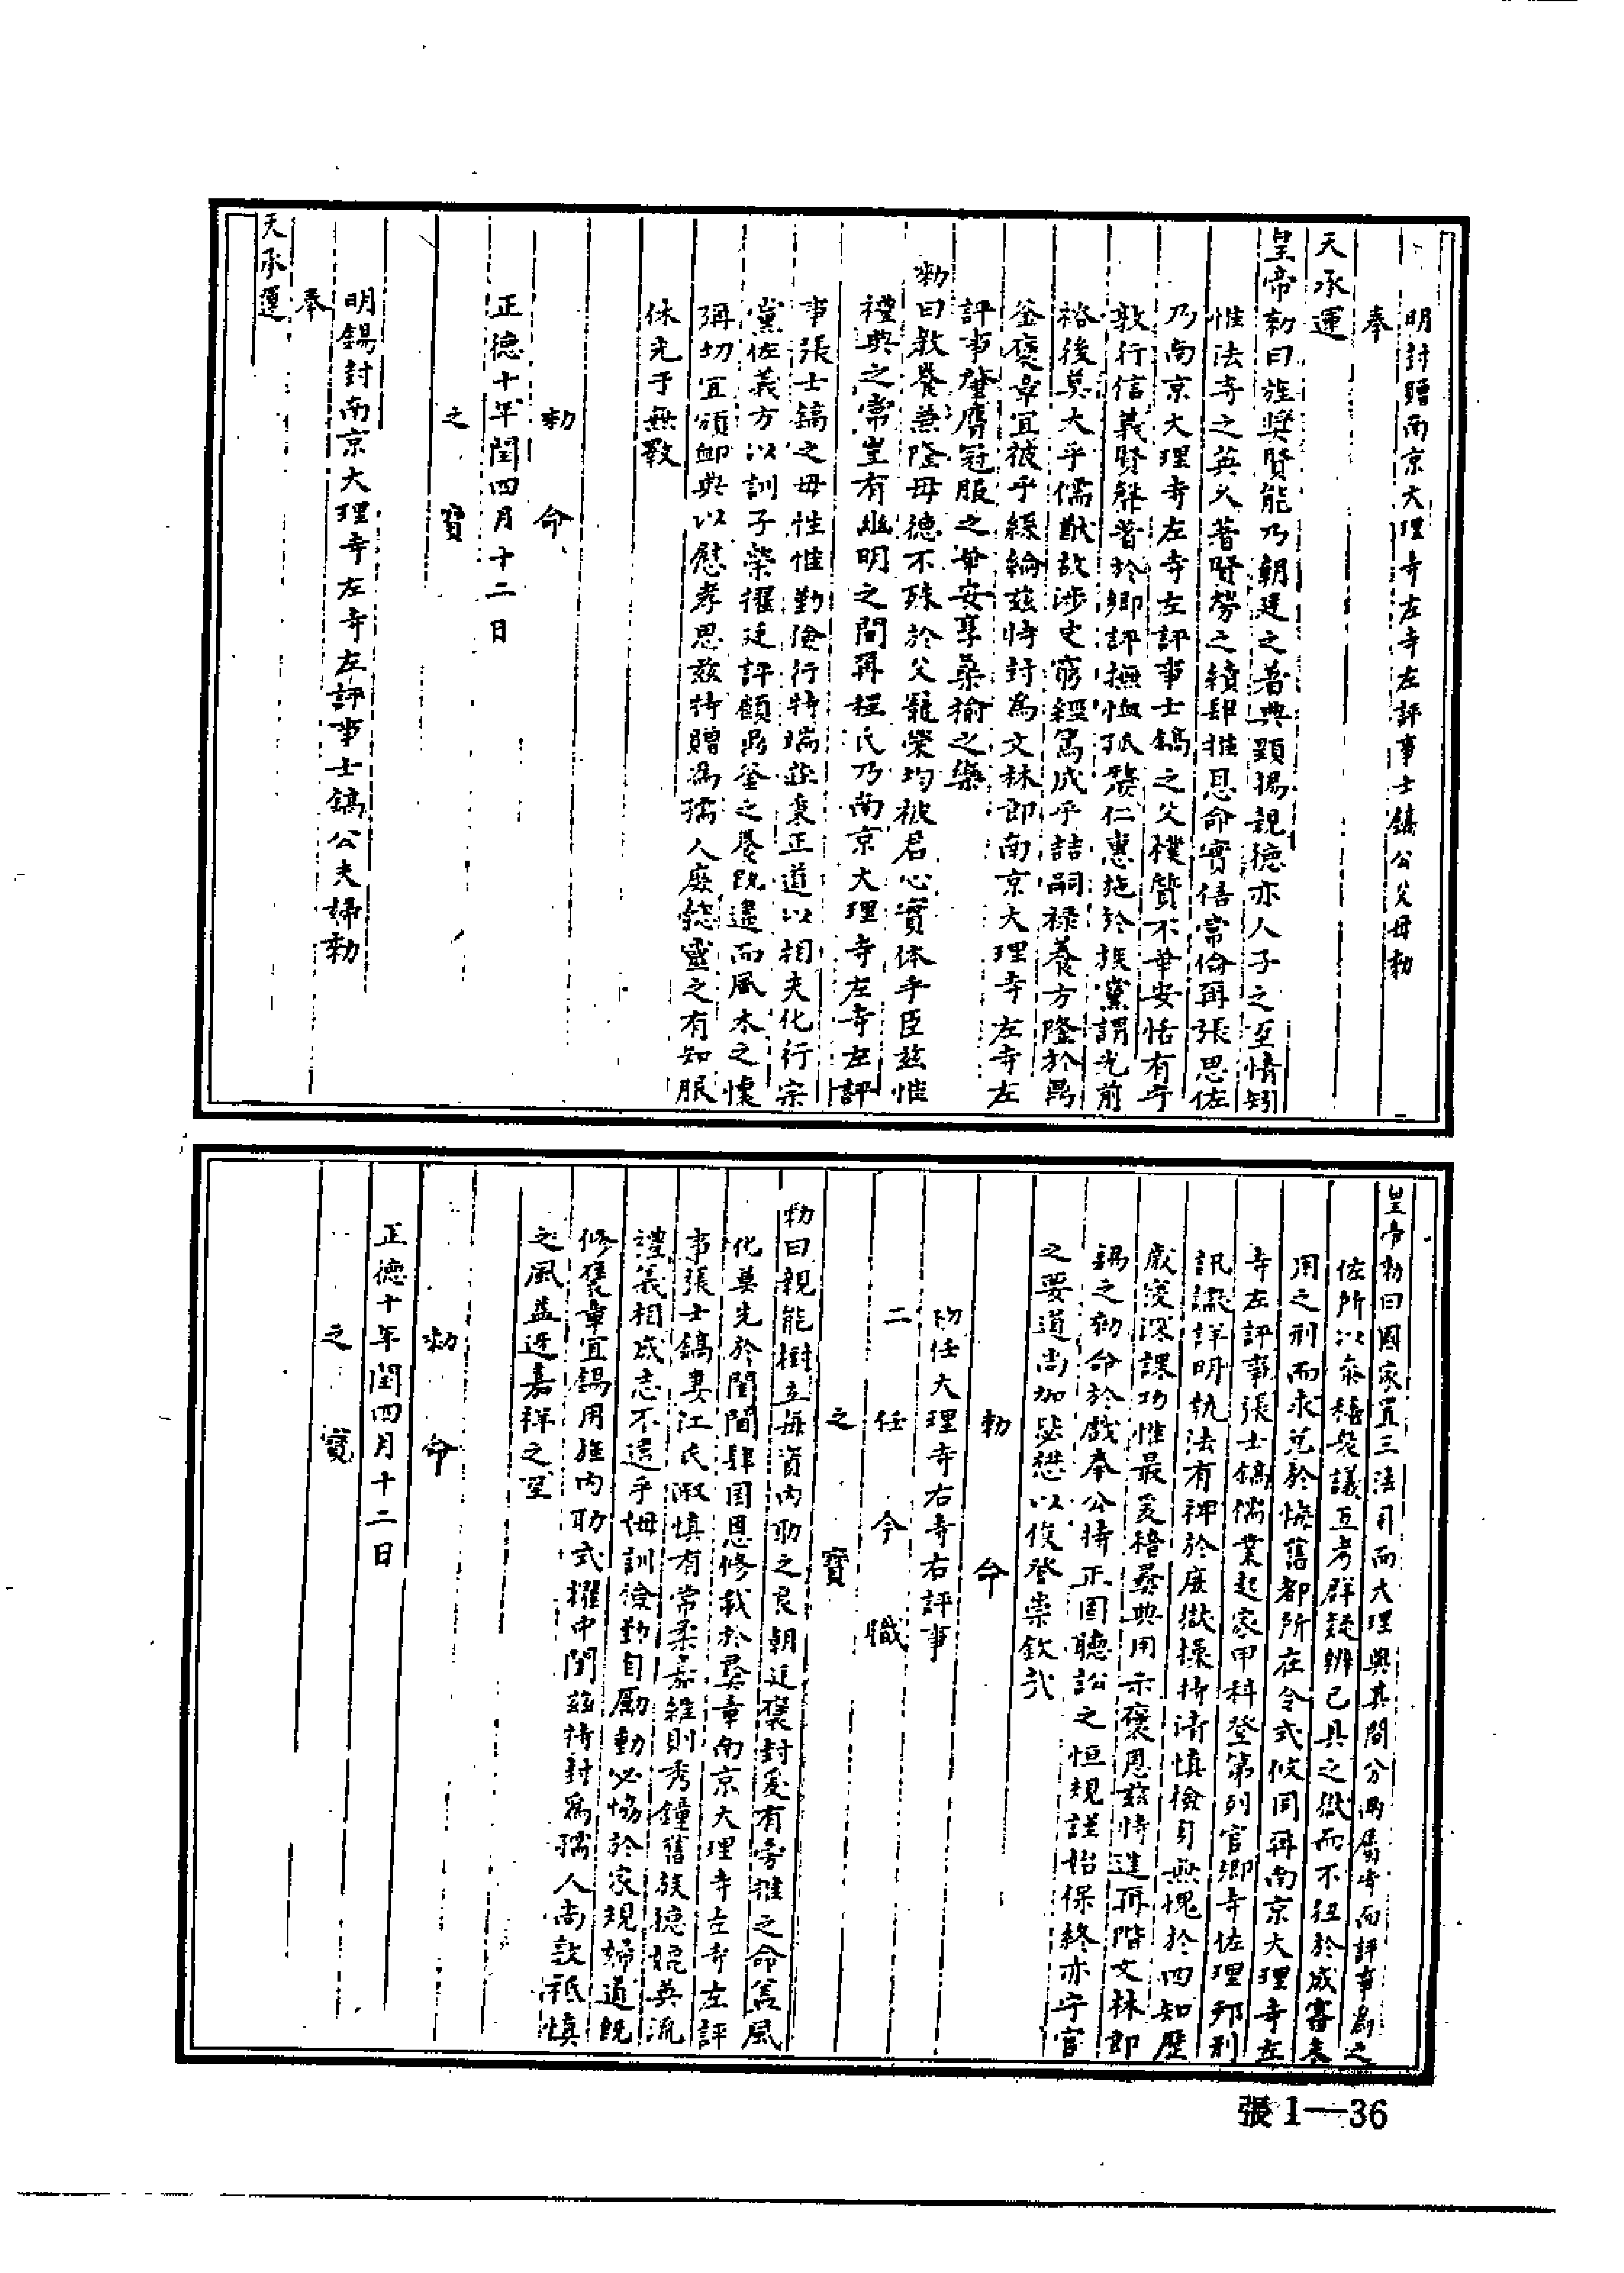 明封贈南京大理寺左寺左評事士鎬公父母勅
奉
天承運
皇帝勅曰旌奬賢能乃朝廷之著典顯揚親德亦人子之至情矧
惟法寺之英久著賢勞之績肆推恩命實倍常倫爾張思佐
乃南京大理寺左寺左評事士鎬之父樸質不華安恬有守
敦行信義賢聲著於鄉評撫恤孤嫠仁惠施於族黨謂光前
裕後莫大乎儒猷故涉史窮經篤成乎喆嗣祿養方隆於鬴
釜褒章宜被乎絲綸茲特封為文林郎南京大理寺左寺左
評事肇膺冠服之華安享桑榆之樂
勅曰教養兼隆母德不殊於父寵榮均被君心實体乎臣茲惟
禮典之常豈有幽明之間爾程氏乃南京大理寺左寺左評
事張士鎬之母性惟勤儉行特端莊秉正道以相夫化行宗
黨佐義方以訓子榮擢廷評顧鬴釜之養既違而風木之懷
彌切宜頒卹典以慰孝思茲特贈為孺人庶慰靈之有知服
休光于無斁
勅命
正德十年閏四月十二日
之寳
明錫封南京大理寺左寺左評事士鎬公夫婦勅
奉
天承運
皇帝勅曰國家置三法司而大理與其間分兩屬寺而評事爲之
佐所以叅稽衆議互考群疑辨已具之獄而不狃於成審未
用之刑而求免於悔舊都所在令式攸同爾南京大理寺左
寺左評事張士鎬儒業起家甲科登第列官卿寺佐理邦刑
訊讞詳明執法有裨於庶獄操持清慎撿身無愧於四知歷
歲寖深課功惟最爰稽彞典用示褒恩茲特進爾階文林郎
錫之勅命於戲奉公持正固聽訟之恒規謹始保終亦守官
之要道尚加毖懋以俟登崇欽哉
勅命
初任大理寺右寺右評事
二任今職
之寳
勅曰親能樹立每資內助之良朝廷褒封爰有旁推之命葢風
化莫先於閨閫肆國恩修載於彞章南京大理寺左寺左評
事張士鎬妻江氏淑慎有常柔嘉維則秀鐘舊族德媲英流
禮義相成志不違乎姆訓儉勤自勵動必恊於家規婦道旣
修褒章宜錫用旌內助式擢中閨茲特封爲孺人尚敦祗慎
之風益迓嘉祥之至
勅命
正德十年閏四月十二日
之寳
張1—36